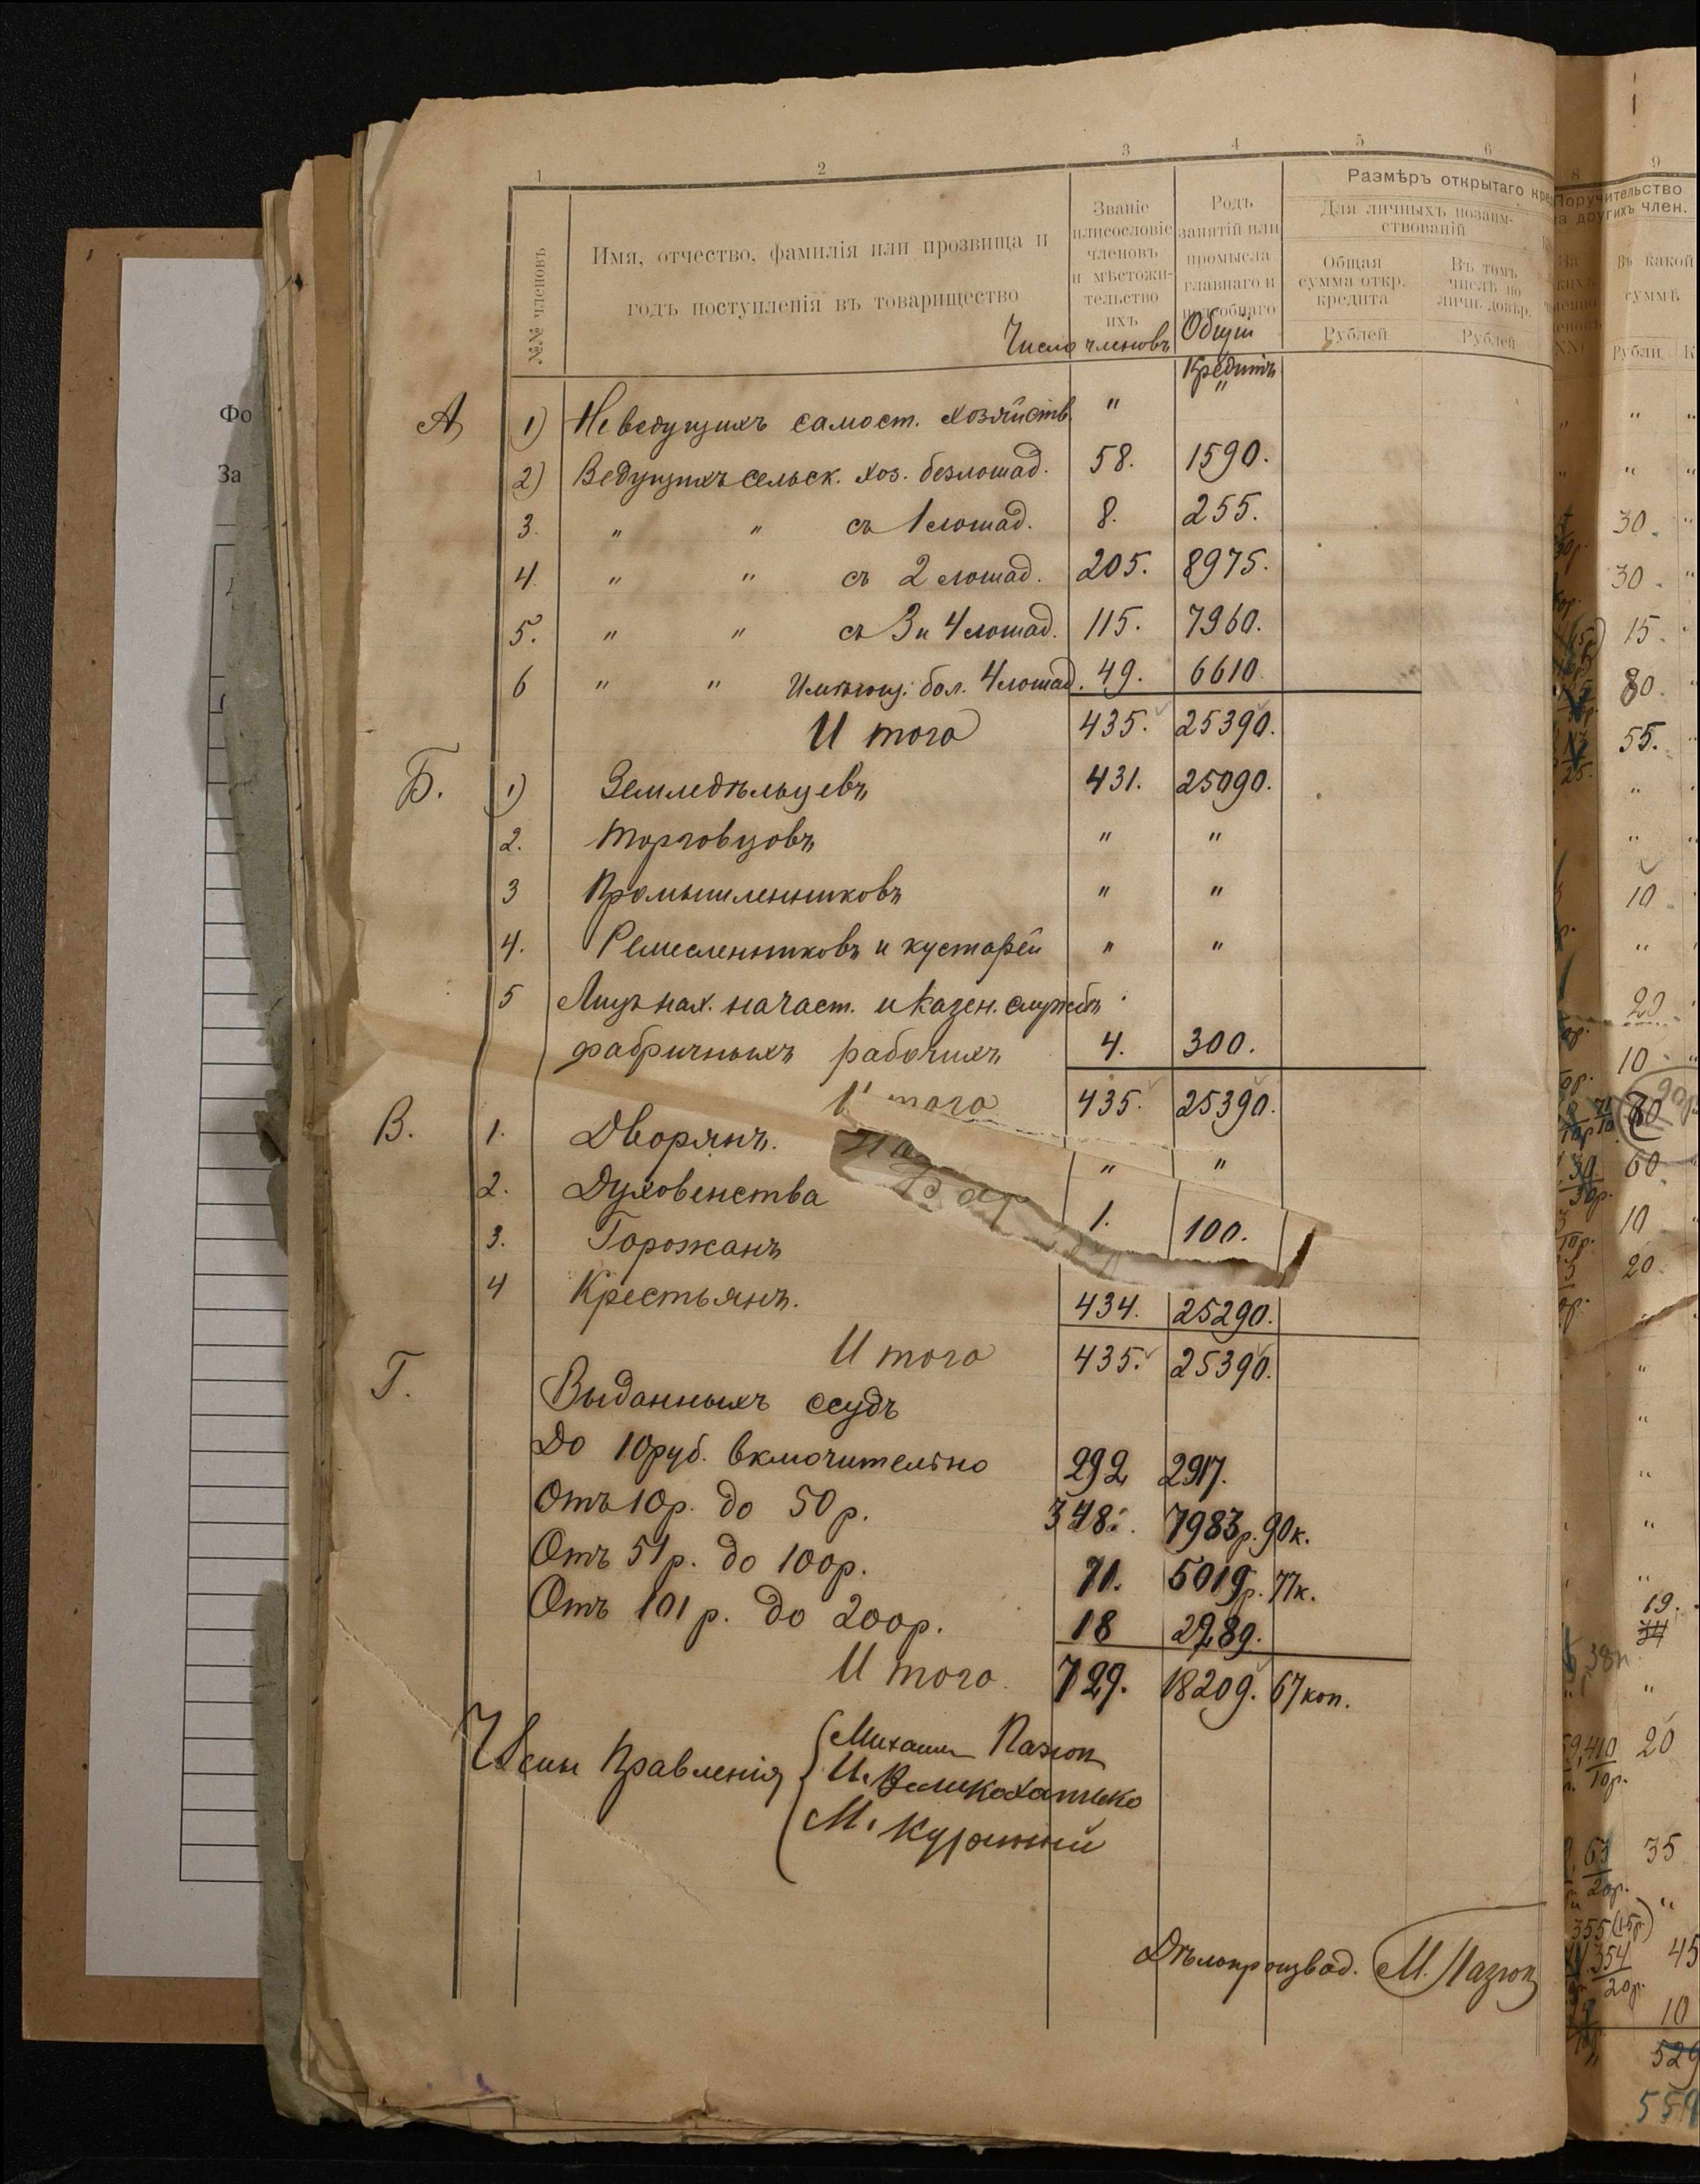 1 2 3 4 5 6
№№ членовъ
Имя, отчество, фамилія или прозвища и
годъ поступленія въ товарищество
Званіе
или сословіе
членовъ
и мѣстожи-
тельство
ихъ
Число членовъ
Родъ
занятій или
промысла
главнаго и
подсобнаго
Общій
Кредитъ
Размѣръ открытаго
Для личныхъ позаим-
ствованій
Общая
сумма откр.
кредита
Рублей
Въ томъ
числѣ по
личн. довѣр.
Рублей
А 1) Не ведущихъ самост. хозяйств. " "
2) Ведущихъ сельск. хоз. безлошад. 58. 1590.
3. " " съ 1 лошад. 8. 255.
4. " " съ 2 лошад. 205. 8975.
5. " " съ 3 и 4 лошад. 115. 7960.
6 " " Имѣющ. бол. 4 лошад. 49. 6610.
Итого 435. 25390.
Б. 1) Земледѣльцевъ 431. 25090.
2. Торговцовъ " "
3 Промышленниковъ " "
4. Ремесленниковъ и кустарей " "
5 Лицъ нах. на част. и казен. службѣ
фабричныхъ рабочихъ 4. 300.
Итого 435. 25390.
В. 1. Дворянъ. " "
2. Духовенства 1. 100.
3. Горожанъ
4 Крестьянъ. 434. 25290.
Итого 435. 25390.
Г. Выданныхъ ссудъ
До 10 руб. включительно 292 2917.
Отъ 10 р. до 50 р. 348. 7983 р. 90 к.
Отъ 51 р. до 100 р. 71. 5019 р. 77 к.
Отъ 101 р. до 200 р. 18 2289.
Итого 729. 18209. 67 коп.
Члены Правленія Михаилъ Пазюк
И. Великохатько
М. Куринный
Дѣлопроизвод. М. Пазюк
Фо
За
8 9
Поручительство
на другихъ член.
Въ какой
суммѣ
Рубли
30.
30.
15.
80.
55.
10
20
10
60
10
20
19.
20
35
45
10
529